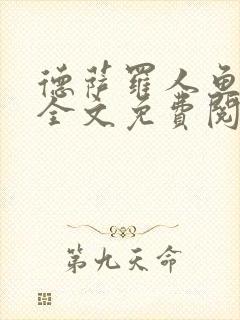 德萨罗人鱼
全文免费阅
第九天命